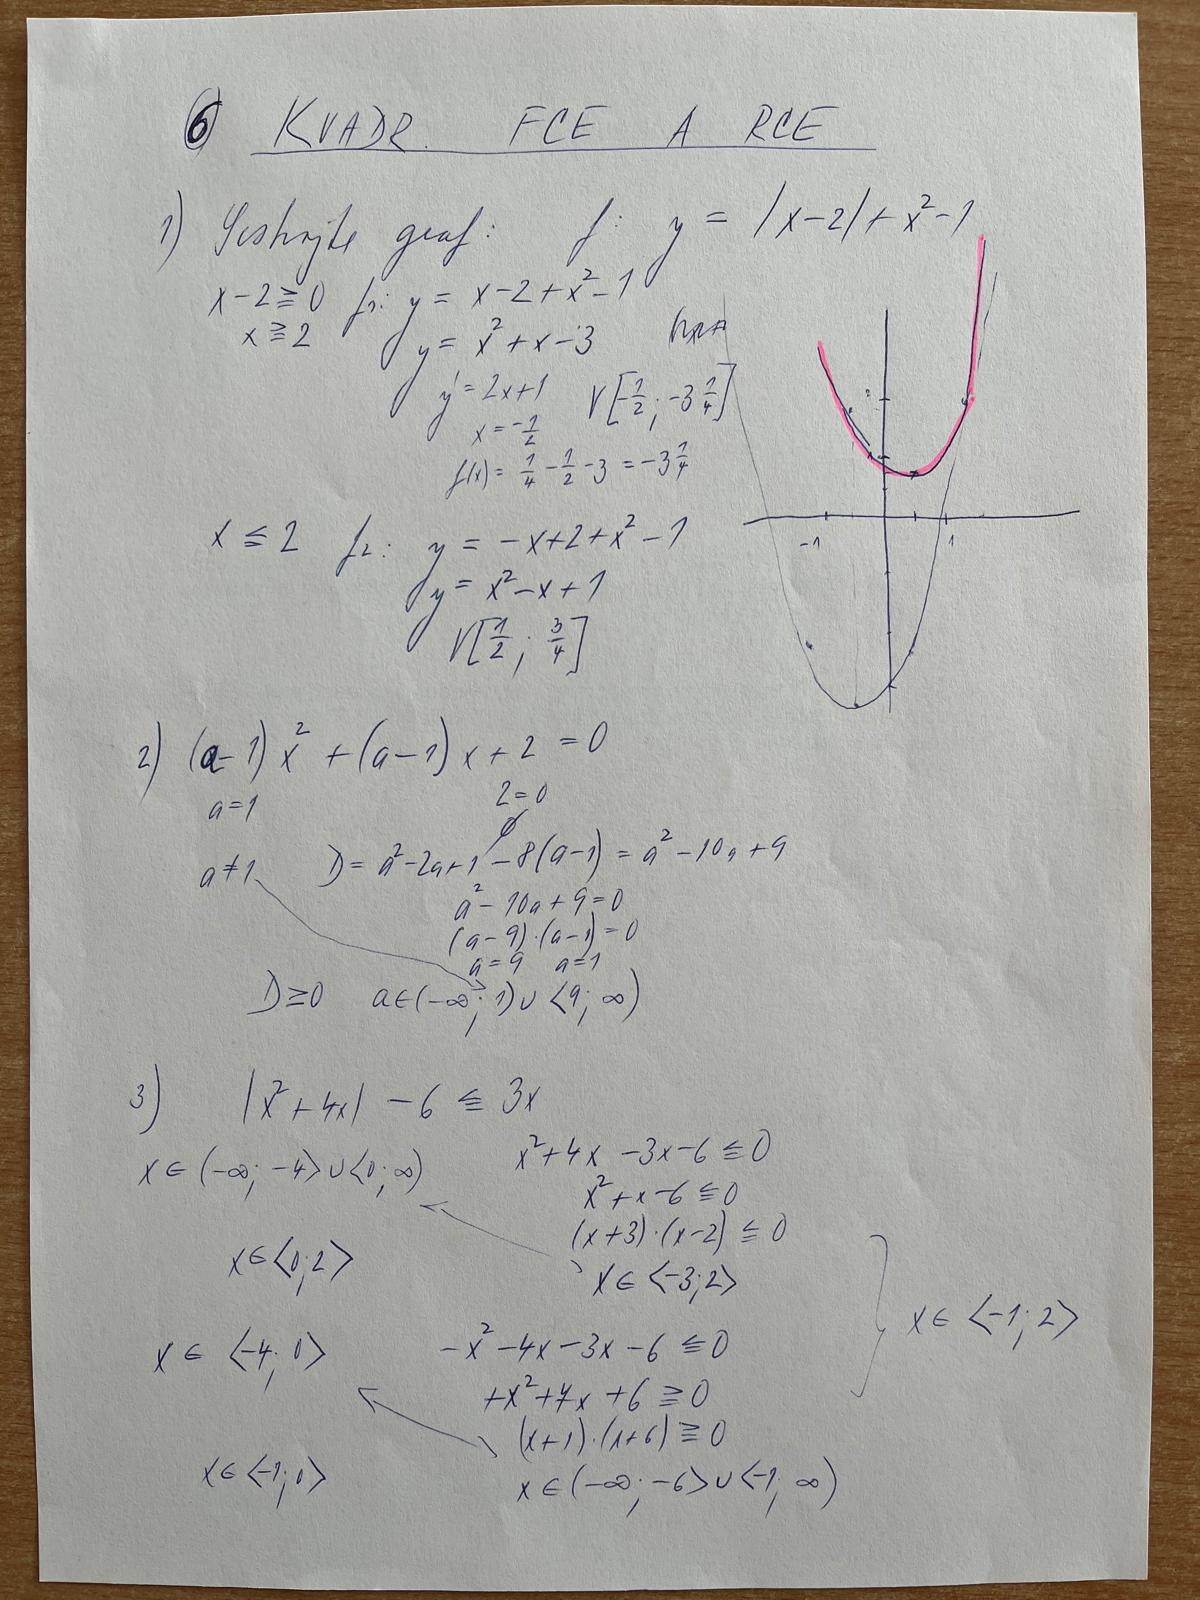 6 KVADR. FCE A RCE
1) Sestrojte graf: f: y = |x-2| + x² - 1
x-2 ≧ 0 f₁: y = x-2+x²-1
x ≧ 2 y = x²+x-3
y' = 2x+1 V[-1/2; -3 1/4]
x = -1/2
f(x) = 1/4 - 1/2 - 3 = -3 1/4
-1 1
x ≦ 2 f₂: y = -x+2+x²-1
y = x²-x+1
V[1/2; 3/4]
2) (a-1)x² + (a-1)x + 2 = 0
a=1 2=0
∅
a≠1 D = a²-2a+1-8(a-1) = a²-10a+9
a²-10a+9=0
(a-9)·(a-1)=0
a=9 a=1
D≥0 a∈(-∞; 1)∪⟨9; ∞)
3) |x²+4x| - 6 ≦ 3x
x∈(-∞; -4⟩∪⟨0; ∞) x²+4x-3x-6 ≦ 0
x²+x-6 ≦ 0
(x+3)·(x-2) ≦ 0
x∈⟨0;2⟩ x∈⟨-3;2⟩
x∈⟨-1;2⟩
x∈⟨-4; 0⟩ -x²-4x-3x-6 ≦ 0
+x²+7x+6 ≧ 0
(x+1)·(x+6) ≧ 0
x∈⟨-1;0⟩ x∈(-∞; -6⟩∪⟨-1; ∞)